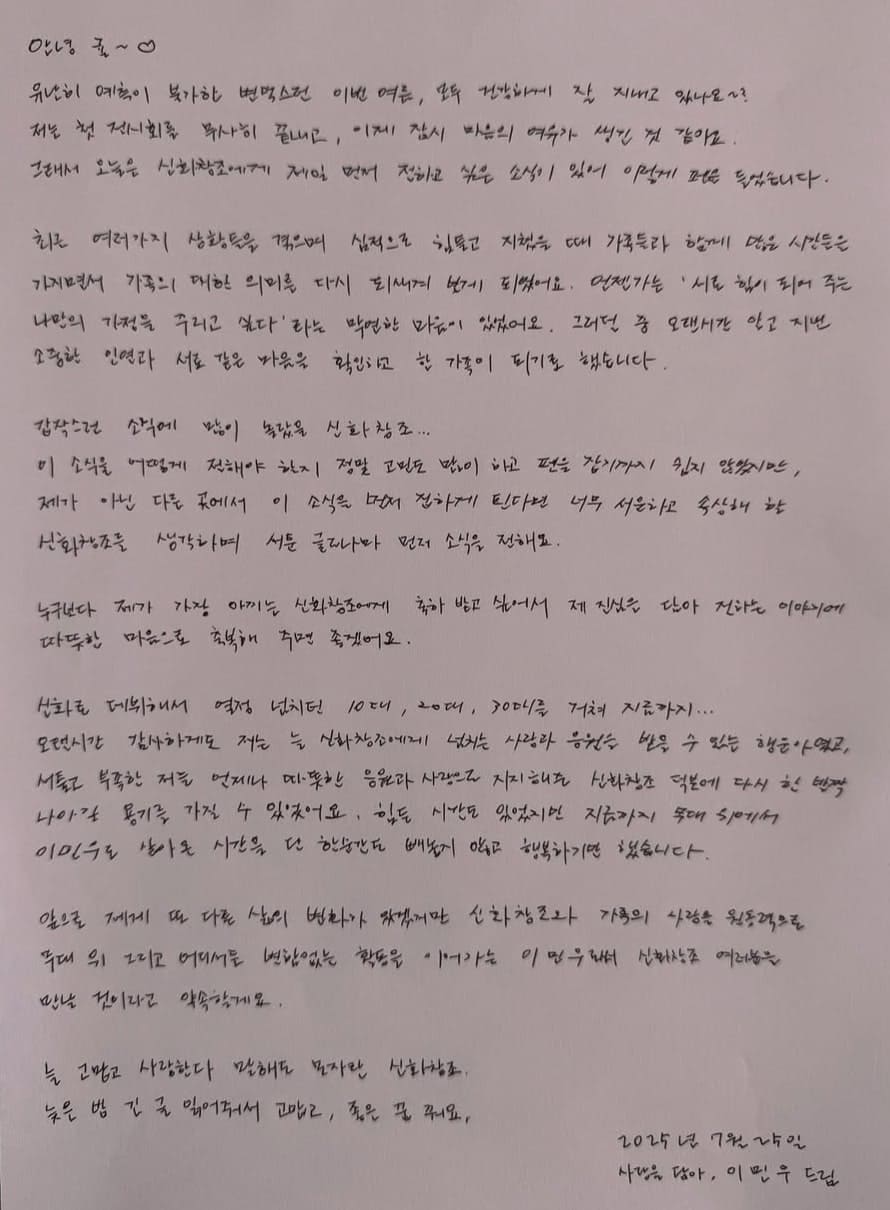 안녕 귤~♡
유난히 예측이 불가한 변덕스런 이번 여름, 모두 건강하게 잘 지내고 있나요~?
저는 첫 전시회를 무사히 끝내고, 이제 잠시 마음의 여유가 생긴 것 같아요.
그래서 오늘은 신화창조에게 제일 먼저 전하고 싶은 소식이 있어 이렇게 펜을 들었습니다.
최근 여러가지 상황들을 겪으며 심적으로 힘들고 지쳤을 때 가족들과 함께 많은 시간들은
가지면서 가족의 대한 의미를 다시 되새겨 보게 되었어요. 언젠가는 '서로 힘이 되어 주는
나만의 가정을 꾸리고 싶다'라는 막연한 마음이 있었어요. 그러던 중 오랜시간 알고 지낸
소중한 인연과 서로 같은 마음을 확인하고 한 가족이 되기로 했습니다.
갑작스런 소식에 많이 놀랐을 신화창조...
이 소식을 어떻게 전해야 한지 정말 고민도 많이 하고 펜을 잡기까지 쉽지 않았지만,
제가 아닌 다른 곳에서 이 소식을 먼저 접하게 된다면 너무 서운하고 속상해 할
신화창조를 생각하며 서툰 글이나마 먼저 소식을 전해요.
누구보다 제가 가장 아끼는 신화창조에게 축하 받고 싶어서 제 진심을 담아 전하는 이야기에
따뜻한 마음으로 축복해 주면 좋겠어요.
신화로 데뷔해서 열정 넘치던 10대, 20대, 30대를 거쳐 지금까지...
오랜시간 감사하게도 저는 늘 신화창조에게 넘치는 사랑과 응원을 받을 수 있는 행운아였고,
서툴고 부족한 저를 언제나 따뜻한 응원과 사랑으로 지지해준 신화창조 덕분에 다시 한 번
나아갈 용기를 가질 수 있었어요. 힘든 시간도 있었지만 지금까지 무대 위에서
이민우로 살아온 시간을 단 한순간도 빼놓지 않고 행복하기만 했습니다.
앞으로 제게 또 다른 삶의 변화가 있겠지만 신화창조와 가족의 사랑을 원동력으로
무대 위 그리고 어디서든 변함없는 활동을 이어가는 이민우로써 신화창조 여러분을
만날 것이라고 약속할게요.
늘 고맙고 사랑한다 말해도 모자란 신화창조.
늦은 밤 긴 글 읽어줘서 고맙고, 좋은 꿈 꿔요.
2025년 7월 25일
사랑을 담아, 이민우 드림